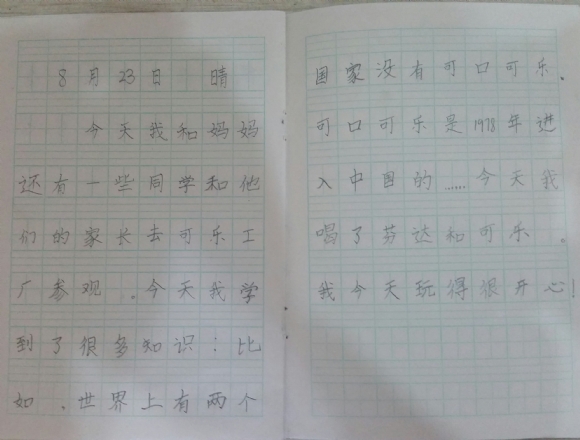 8月23日 晴
今天我和妈妈
还有一些同学和他
们的家长去可乐工
厂参观。今天我学
到了很多知识：比
如、世界上有两个
国家没有可口可乐、
可口可乐是1978年进
入中国的……今天我
喝了芬达和可乐。
我今天玩得很开心！